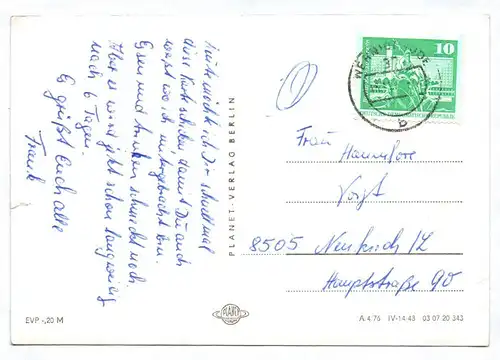 heute möchte ich Dir schnell mal
diese Karte schicken damit Du auch
weißt wo ich untergebracht bin.
Essen und trinken schmeckt noch
Aber es wird jetzt schon langweilig
nach 6 Tagen.
Es grüßt Euch alle
Frank
PLANET-VERLAG BERLIN
10
DEUTSCHE DEMOKRATISCHE REPUBLIK
Frau
Hannelore
Voigt
8505 Neukirch /L
Hauptstraße 90
EVP -,20 M
PLANET
A 4/76 IV-14-43 03 07 20 343